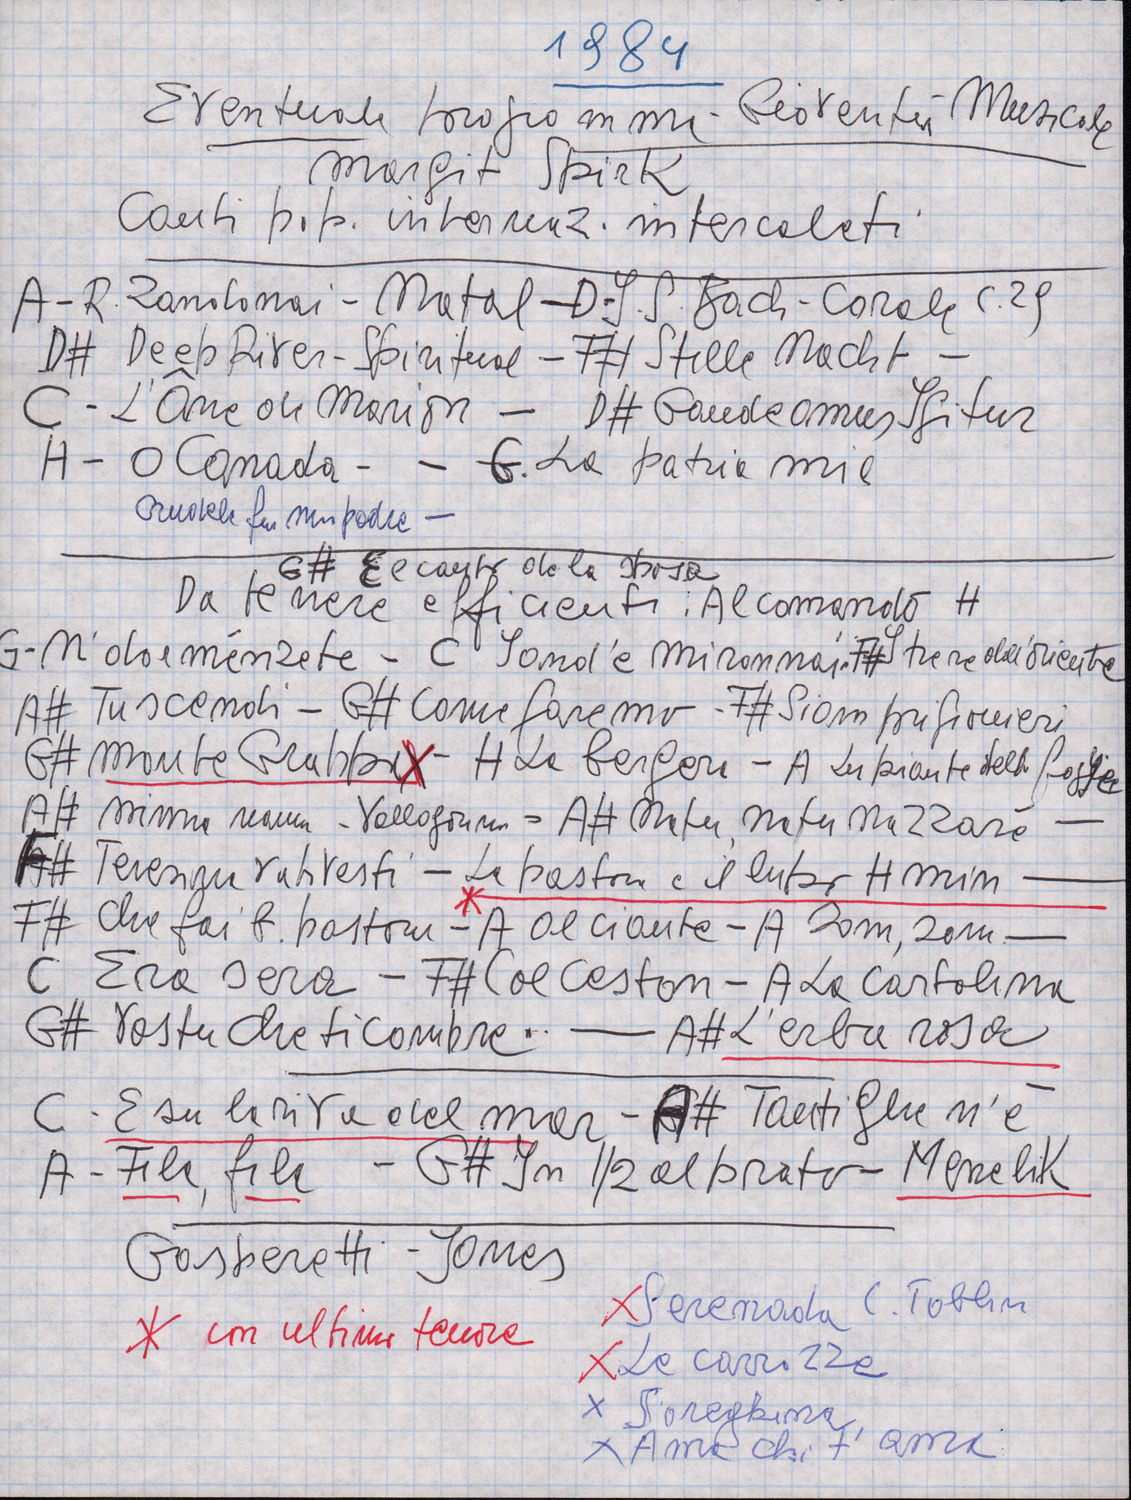 1984
Eventuale programma - Gioventù Musicale
Margit Spirk
Canti pop. internaz. intercalati
A - R. Zandonai - Natal - D. J. S. Bach - Corale C. 29
D# Deep River - Spiritual - F# Stille Nacht -
C - L'Âne de Marion - D# Gaudeamus Igitur
H - O Canada - - G. La patria mia
Crudele fu mio padre -
G# E e canto de la sposa
Da tenere efficienti: Al comando H
G - N' do e ménzete - C Son d'è Mironnai. F# I tre re dell'oriente
A# Tu scendi - G# Come faremo - F# Siam prigionieri
G# Monte Grappa X - H La Bergera - A La piante della foglie
A# ninna nanna - Vallagarina = A# Natu, natu Nazzarè -
F# Teresina vutvesti - La pastora e il lupo H min -
F# Che fai b. pastora - A al ciante - A Zom, zom. -
C Era sera - F# Col Ceston - A La Cartolina
G# Vostu che ti combre.. - A# L'erba rosa
C - E su la riva del mar - A# Tanti ghe n'è
A - Fila, fila - G# In 1/2 al prato - Menelik
Gasperetti - Jones
* con ultimo tenore
X Serenada C. Toblin
X La carrozza
x
x Ama chi t' ama